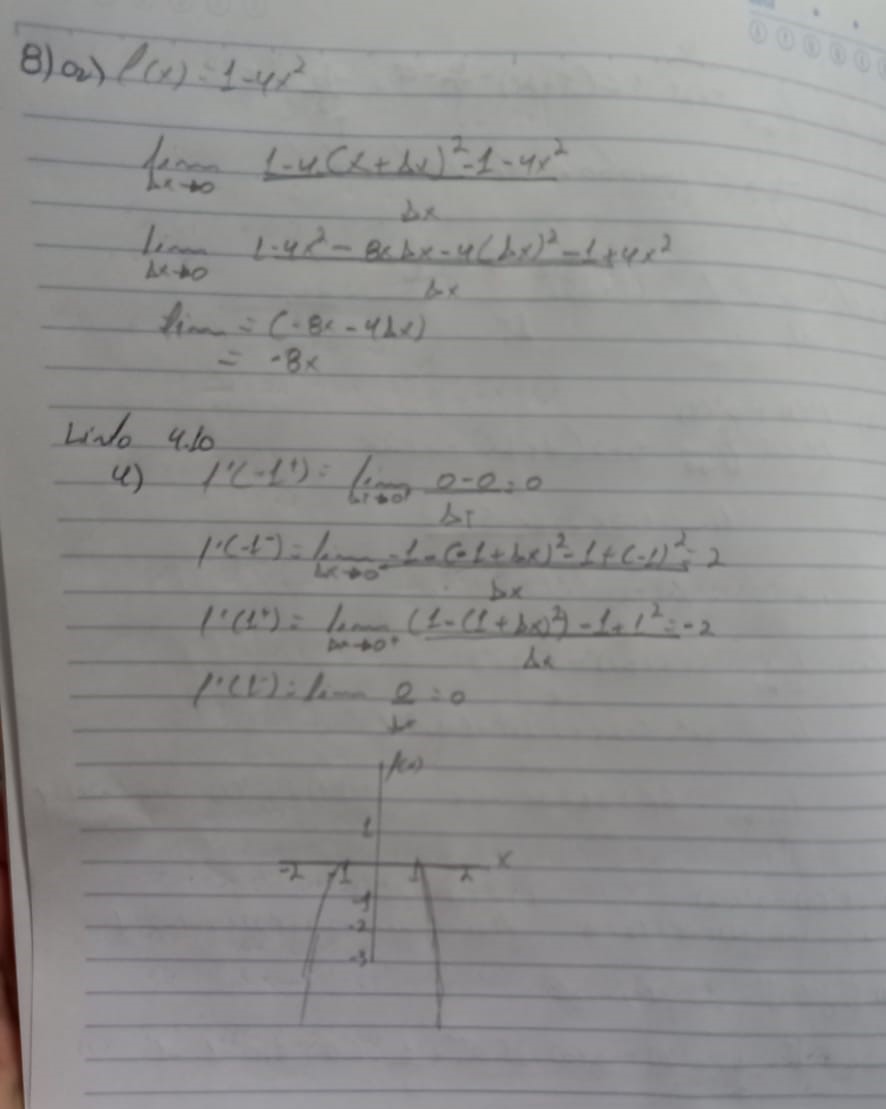 8) a) f(x) = 1-4x²
lim Δx→0 1-4(x+Δx)²-1-4x² / Δx
lim Δx→0 1-4x² - 8xΔx - 4(Δx)² - 1 + 4x² / Δx
lim = (-8x - 4Δx)
= -8x
Lista 4.10
4) f'(-1⁺) = lim 0-0 = 0
f'(-1⁻) = lim Δx→0⁻ 1-(-1+Δx)²-1+(-1)² / Δx = 2
f'(1⁺) = lim Δx→0⁺ (1-(1+Δx)²)-1+1² / Δx = -2
f'(1⁻) = lim 0 = 0
f(x)
1
-2 -1 1 2 x
-1
-2
-3